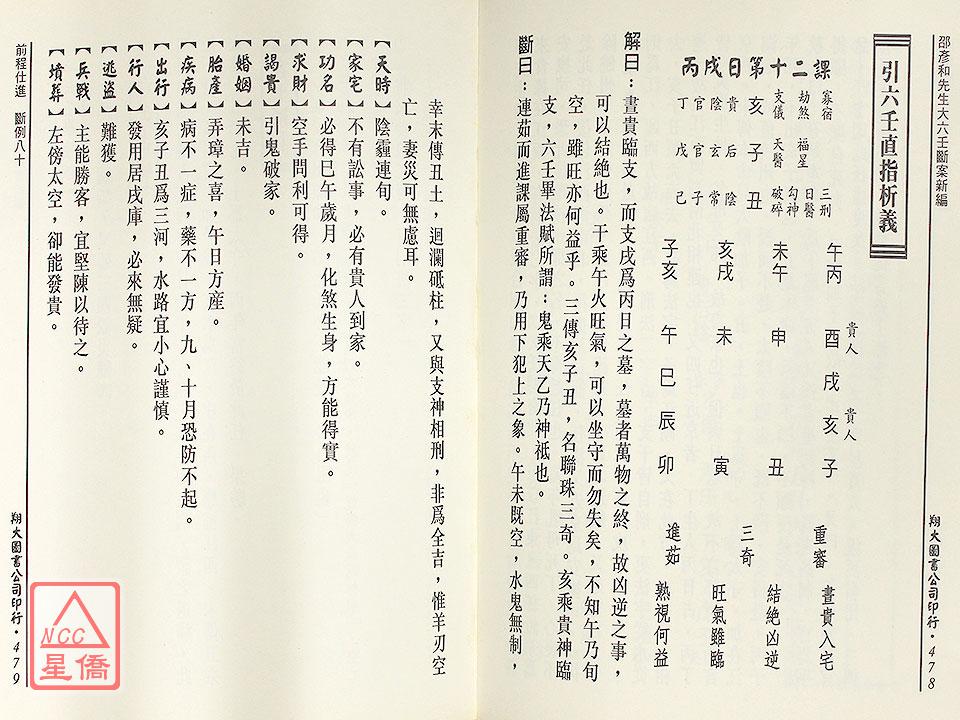 邵彥和先生大六壬斷案新編
翔大圖書公司印行・478
引六壬直指析義
丙戌日第十二課
寡宿 三刑
劫煞 福星 日醫
支儀 天醫 破碎 勾神
亥 子 丑
貴 后 陰
陰 玄 常
官 官 子
丁 戊 己
午丙
未午
亥戌
子亥
貴人 貴人
酉 戌 亥 子
申 丑
未 寅
午 巳 辰 卯
重審
三奇
進茹
晝貴入宅
結絶凶逆
旺氣雖臨
熟視何益
解曰：晝貴臨支，而支戌爲丙日之墓，墓者萬物之終，故凶逆之事，
可以結絶也。干乘午火旺氣，可以坐守而勿失矣，不知午乃旬
空，雖旺亦何益乎。三傳亥子丑，名聯珠三奇。亥乘貴神臨
支，六壬畢法賦所謂：鬼乘天乙乃神祇也。
斷曰：連茹而進課屬重審，乃用下犯上之象。午未既空，水鬼無制，
幸末傳丑土，迴瀾砥柱，又與支神相刑，非爲全吉，惟羊刃空
亡，妻災可無慮耳。
【天時】陰霾連旬。
【家宅】不有訟事，必有貴人到家。
【功名】必得巳午歲月，化煞生身，方能得實。
【求財】空手問利可得。
【謁貴】引鬼破家。
【婚姻】未吉。
【胎產】弄璋之喜，午日方産。
【疾病】病不一症，藥不一方，九、十月恐防不起。
【出行】亥子丑爲三河，水路宜小心謹慎。
【行人】發用居戌庫，必來無疑。
【逃盜】難獲。
【兵戰】主能勝客，宜堅陳以待之。
【墳葬】左傍太空，卻能發貴。
前程仕進 斷例八十
翔大圖書公司印行・479
NCC
星僑